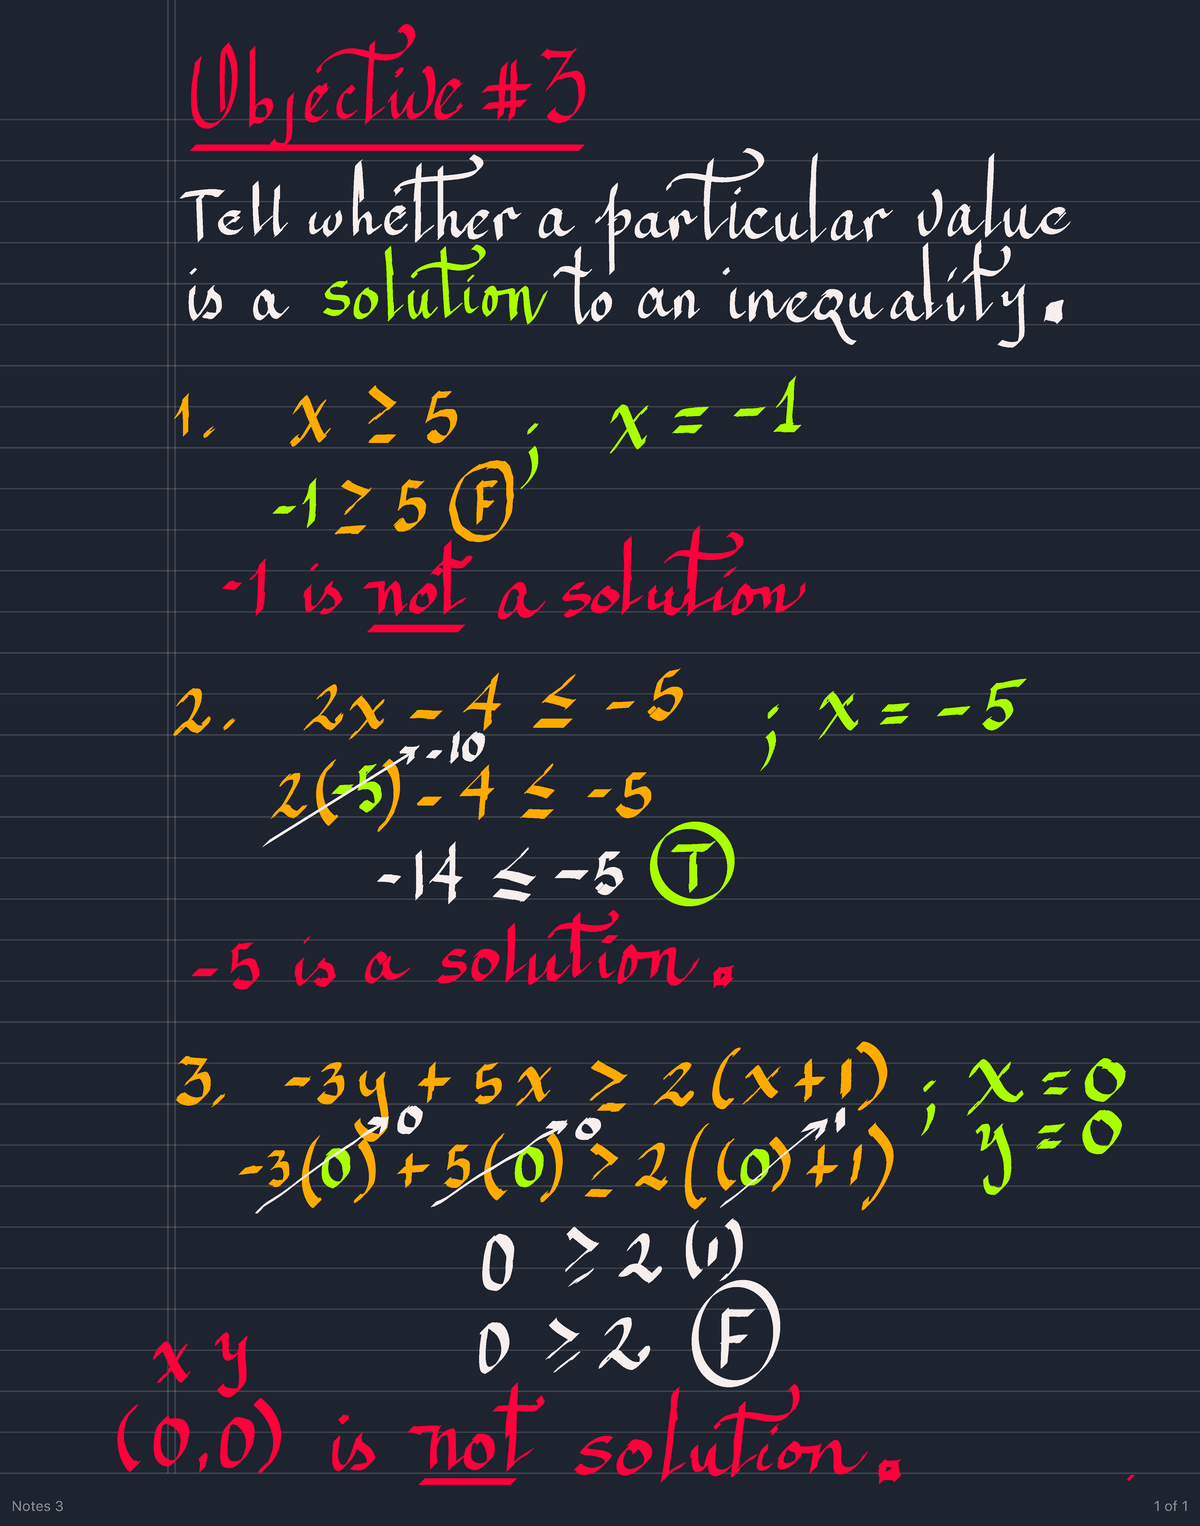 Objective #3
Tell whether a particular value
is a solution to an inequality.
1. x ≥ 5 ; x = -1
-1 ≥ 5 F
-1 is not a solution
2. 2x - 4 ≤ -5 ; x = -5
-10
2(-5) - 4 ≤ -5
-14 ≤ -5 T
-5 is a solution.
3. -3y + 5x ≥ 2(x+1) ; x = 0
y = 0
0 0 1
-3(0) + 5(0) ≥ 2((0)+1)
0 ≥ 2(1)
0 ≥ 2 F
x y
(0,0) is not solution.
Notes 3
1 of 1